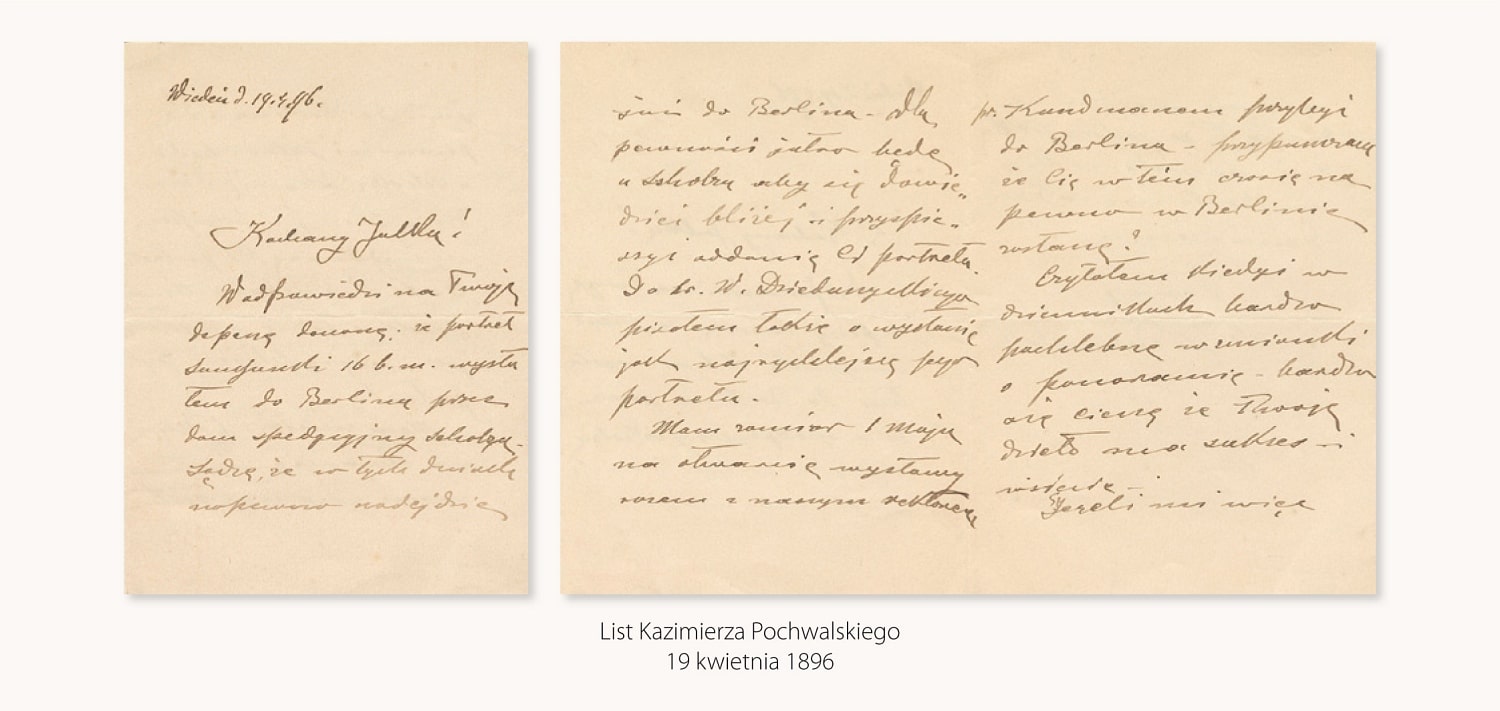 Wiedeń d. 19.4.96.
Kochany Julku!
W odpowiedzi na Twoją
depeszę donoszę, że portret
Sanguszki 16 b. m. wysła
łem do Berlina przez
dom spedycyjny
Sądzę, że w tych dniach
napewno nadejdzie
już do Berlina – dla
pewności jutro będę
u aby się dowie„
dzieć bliżej i przyspie„
szyć oddanie Ci portretu.
Do hr. W. Dzieduszyckiego
pisałem także o wysłanie
jak najrychlejsze jego
portretu.
Mam zamiar 1 maja
na otwarcie wystawy
razem z naszym rektorem
pr. Kundmanem przybyć
do Berlina – przypuszczam
że Cię w tem czasie na
pewno w Berlinie
zostanę?
Czytałem kiedyś w
dziennikach bardzo
pochlebne wzmianki
o panoramie – bardzo
się cieszę że Twoje
dzieło ma sukces – i
Jeżeli mi więc
List Kazimierza Pochwalskiego
19 kwietnia 1896